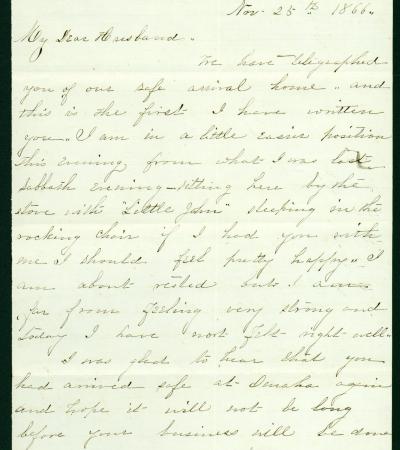 Nov. 25th 1866.
My Dear Husband.
We have telegraphed
you of our safe arrival home. and
this is the first I have written
you. I am in a little easier position
this evening from what I was last
Sabbath evening - sitting here by the
stove with "Little John" sleeping in the
rocking chair if I had you with
me I should feel pretty happy. I
am about rested but I am
far from feeling very strong and
today I have not felt right well.
I was glad to hear that you
had arrived safe at Omaha again
and hope it will not be long
before your business will be done